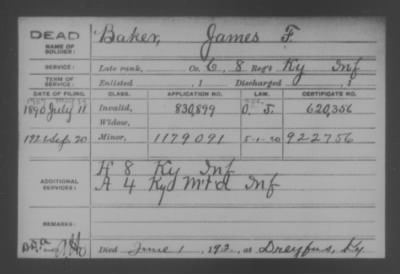 DEAD
NAME OF SOLDIER: Baker, James F.
SERVICE: Late rank, Co. C, 8 Reg't Ky Inf
TERM OF SERVICE: Enlisted , 1 Discharged , 1
DATE OF FILING. CLASS. APPLICATION NO. LAW. CERTIFICATE NO.
1890 July 11 Invalid, 830,899 O. J. 620,356
Widow,
192 Sep. 20 Minor, 1179091 5-1-20 922756
ADDITIONAL SERVICES: K 8 Ky Inf
A 4 Ky Mtd Inf
REMARKS:
Died June 1, 192, at Dreyfus, Ky